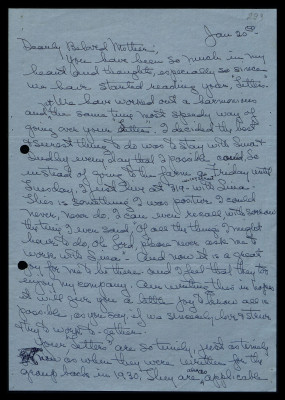 Jan 20
Dearly Beloved Mother,
You have been so much in my
heart and thoughts, especially so since
we have started reading your letters.
We have worked out a harmonious
and the same time most steady way of
going over your letters. I decided the best
thing to do was to stay with
every day that I possibly could, so
instead of going to the farm Friday until
Tuesday, I just stay at with
This is something I was positive I could
never, never do. I can even recall with sorrow
the time I even said, "Of all the things I might
have to do, oh Lord, please never ask me to
work with - And now it is a great
joy for me to be there and I feel that they too
enjoy my company. Am writing this in hopes
it will give you a little joy to know all is
possible, as you say, if we sincerely love & strive
to work together.
Your letters are so timely, just as timely
now as when they were written for the
group back in 1930. They are applicable